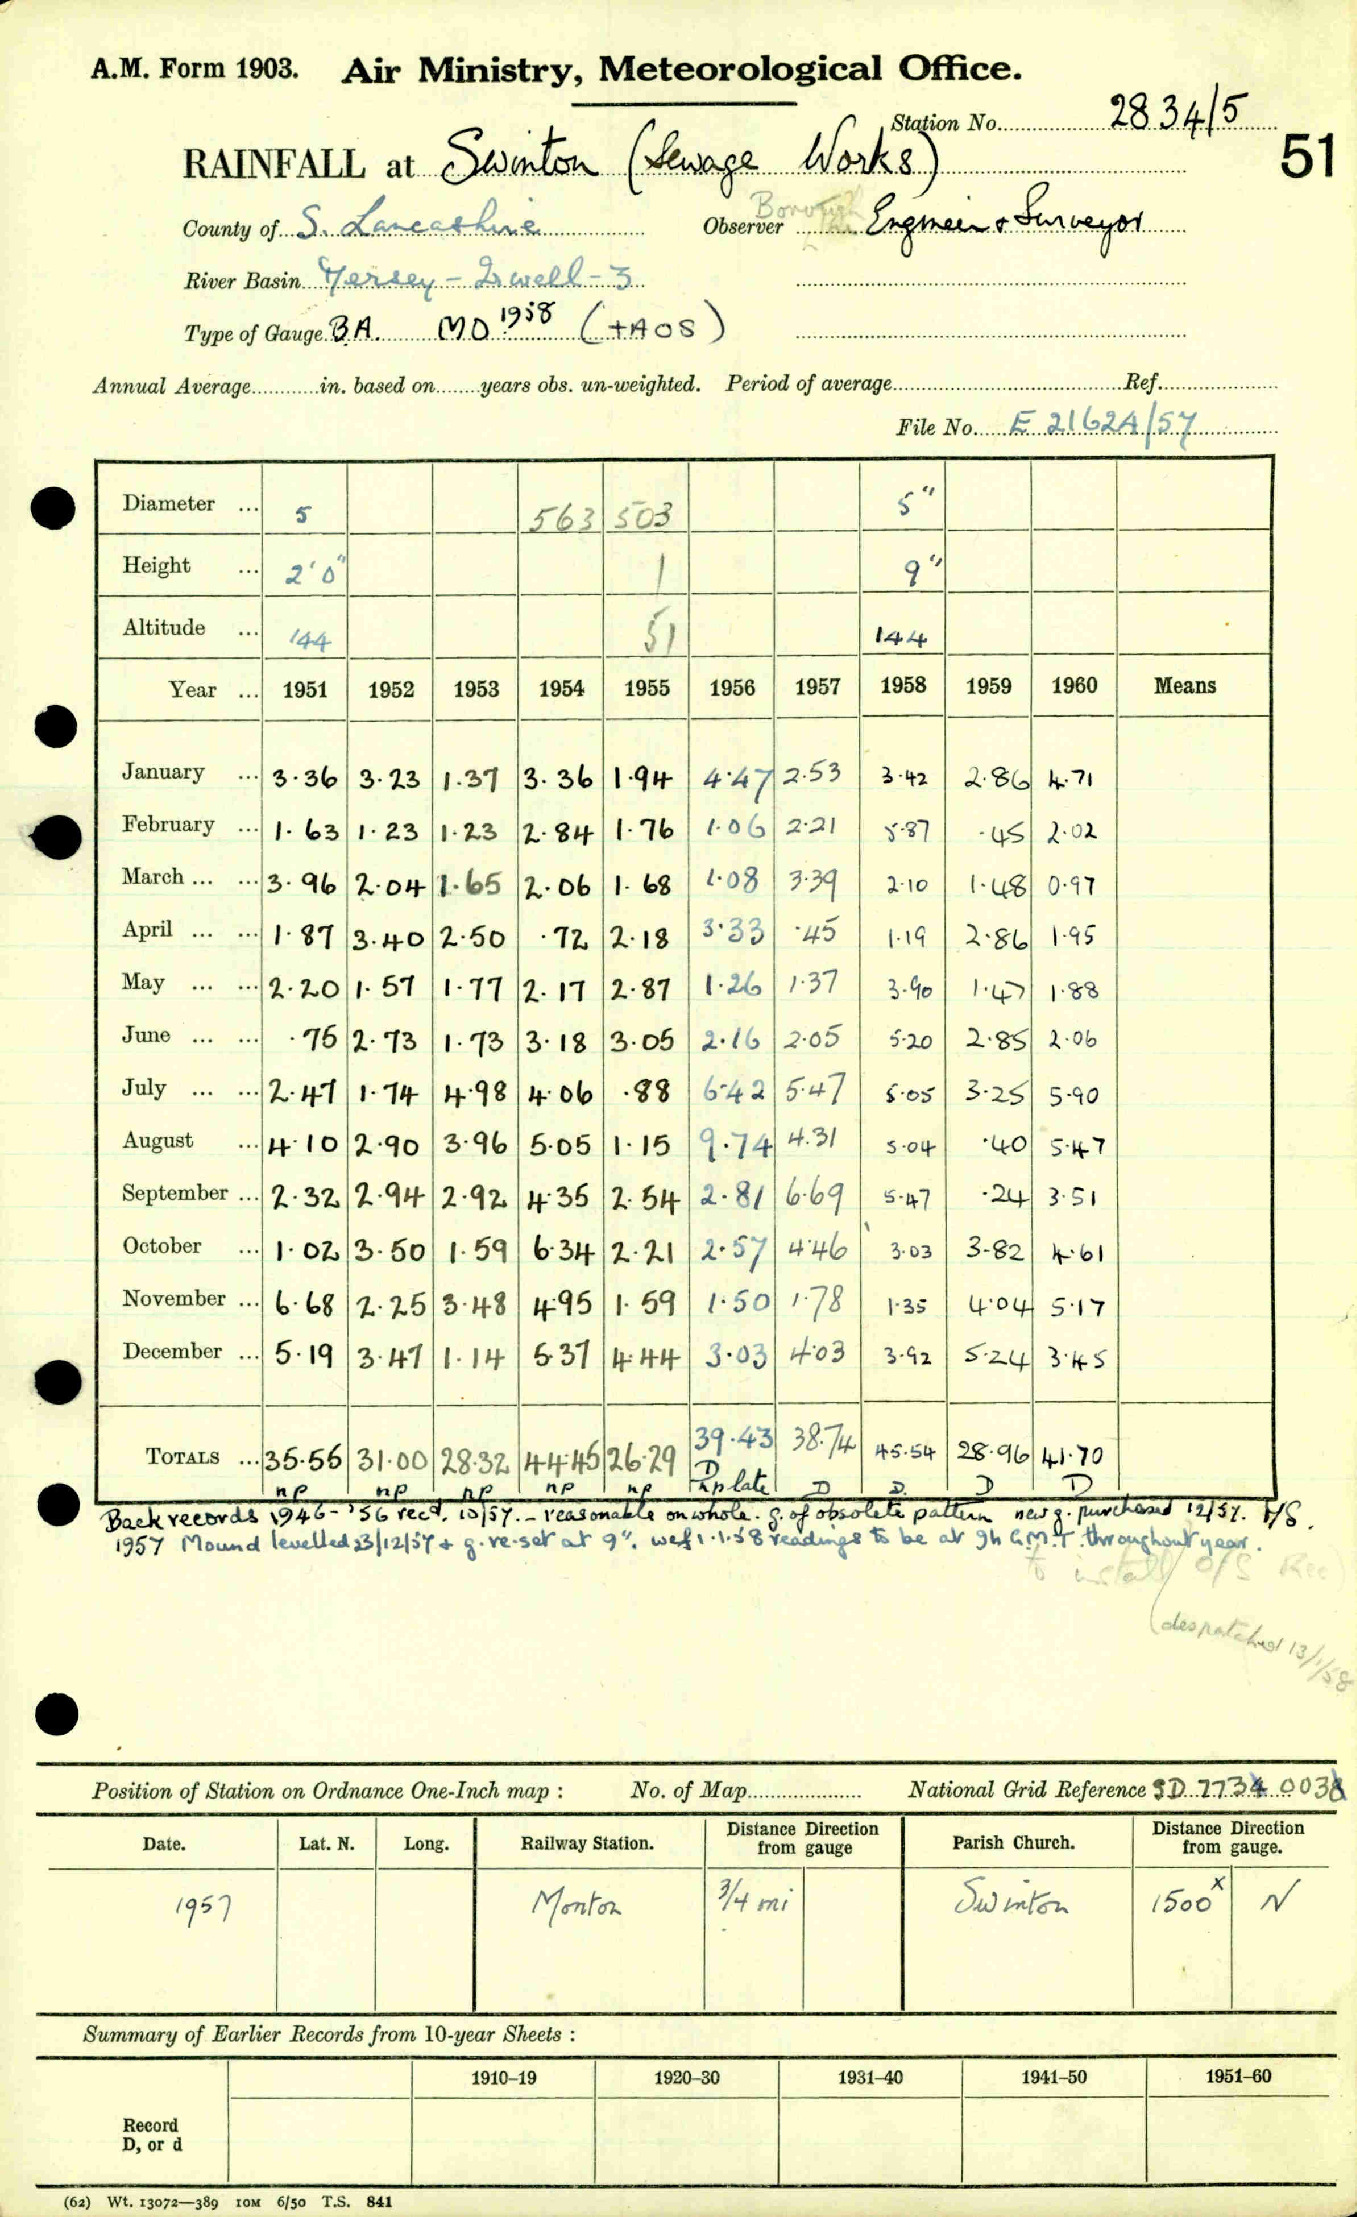 A.M. Form 1903. Air Ministry, Meteorological Office.
Station No. 2834/5
51
RAINFALL at Swinton (Sewage Works)
County of S. Lancashire Observer Borough Engineer & Surveyor
River Basin Mersey - Irwell - 3
Type of Gauge B.A. MO 1958 (+AOS)
Annual Average in. based on years obs. un-weighted. Period of average Ref.
File No. E 21624/57
Diameter ... 5 563 503 5"
Height ... 2'0" 1 9"
Altitude ... 144 51 144
Year ... 1951 1952 1953 1954 1955 1956 1957 1958 1959 1960 Means
January ... 3.36 3.23 1.37 3.36 1.94 4.47 2.53 3.42 2.86 4.71
February ... 1.63 1.23 1.23 2.84 1.76 1.06 2.21 5.87 .45 2.02
March ... ... 3.96 2.04 1.65 2.06 1.68 1.08 3.39 2.10 1.48 0.97
April ... ... 1.87 3.40 2.50 .72 2.18 3.33 .45 1.19 2.86 1.95
May ... ... 2.20 1.57 1.77 2.17 2.87 1.26 1.37 3.90 1.47 1.88
June ... ... .75 2.73 1.73 3.18 3.05 2.16 2.05 5.20 2.85 2.06
July ... ... 2.47 1.74 4.98 4.06 .88 6.42 5.47 5.05 3.25 5.90
August ... 4.10 2.90 3.96 5.05 1.15 9.74 4.31 5.04 .40 5.47
September ... 2.32 2.94 2.92 4.35 2.54 2.81 6.69 5.47 .24 3.51
October ... 1.02 3.50 1.59 6.34 2.21 2.57 4.46 3.03 3.82 4.61
November ... 6.68 2.25 3.48 4.95 1.59 1.50 1.78 1.35 4.04 5.17
December ... 5.19 3.47 1.14 5.37 4.44 3.03 4.03 3.92 5.24 3.45
TOTALS ... 35.55 31.00 28.32 44.45 26.29 39.43 38.74 45.54 28.96 41.70
np np np np np D np late D D. D D
Back records 1946-'56 recd. 10/57. - reasonable on whole. g. of obsolete pattern new g. purchased 12/57.
1957 Mound levelled 23/12/57 + g. re-set at 9". wef 1.1.58 readings to be at 9h G.M.T. throughout year.
to install O/S Rec
(despatched 13/1/58
Position of Station on Ordnance One-Inch map : No. of Map National Grid Reference SD 7734 0038
Date. Lat. N. Long. Railway Station. Distance Direction from gauge Parish Church. Distance Direction from gauge.
1957 Monton 3/4 mi Swinton 1500x N
Summary of Earlier Records from 10-year Sheets :
1910–19 1920–30 1931–40 1941–50 1951–60
Record
D, or d
(62) Wt. 13072—389 10M 6/50 T.S. 841